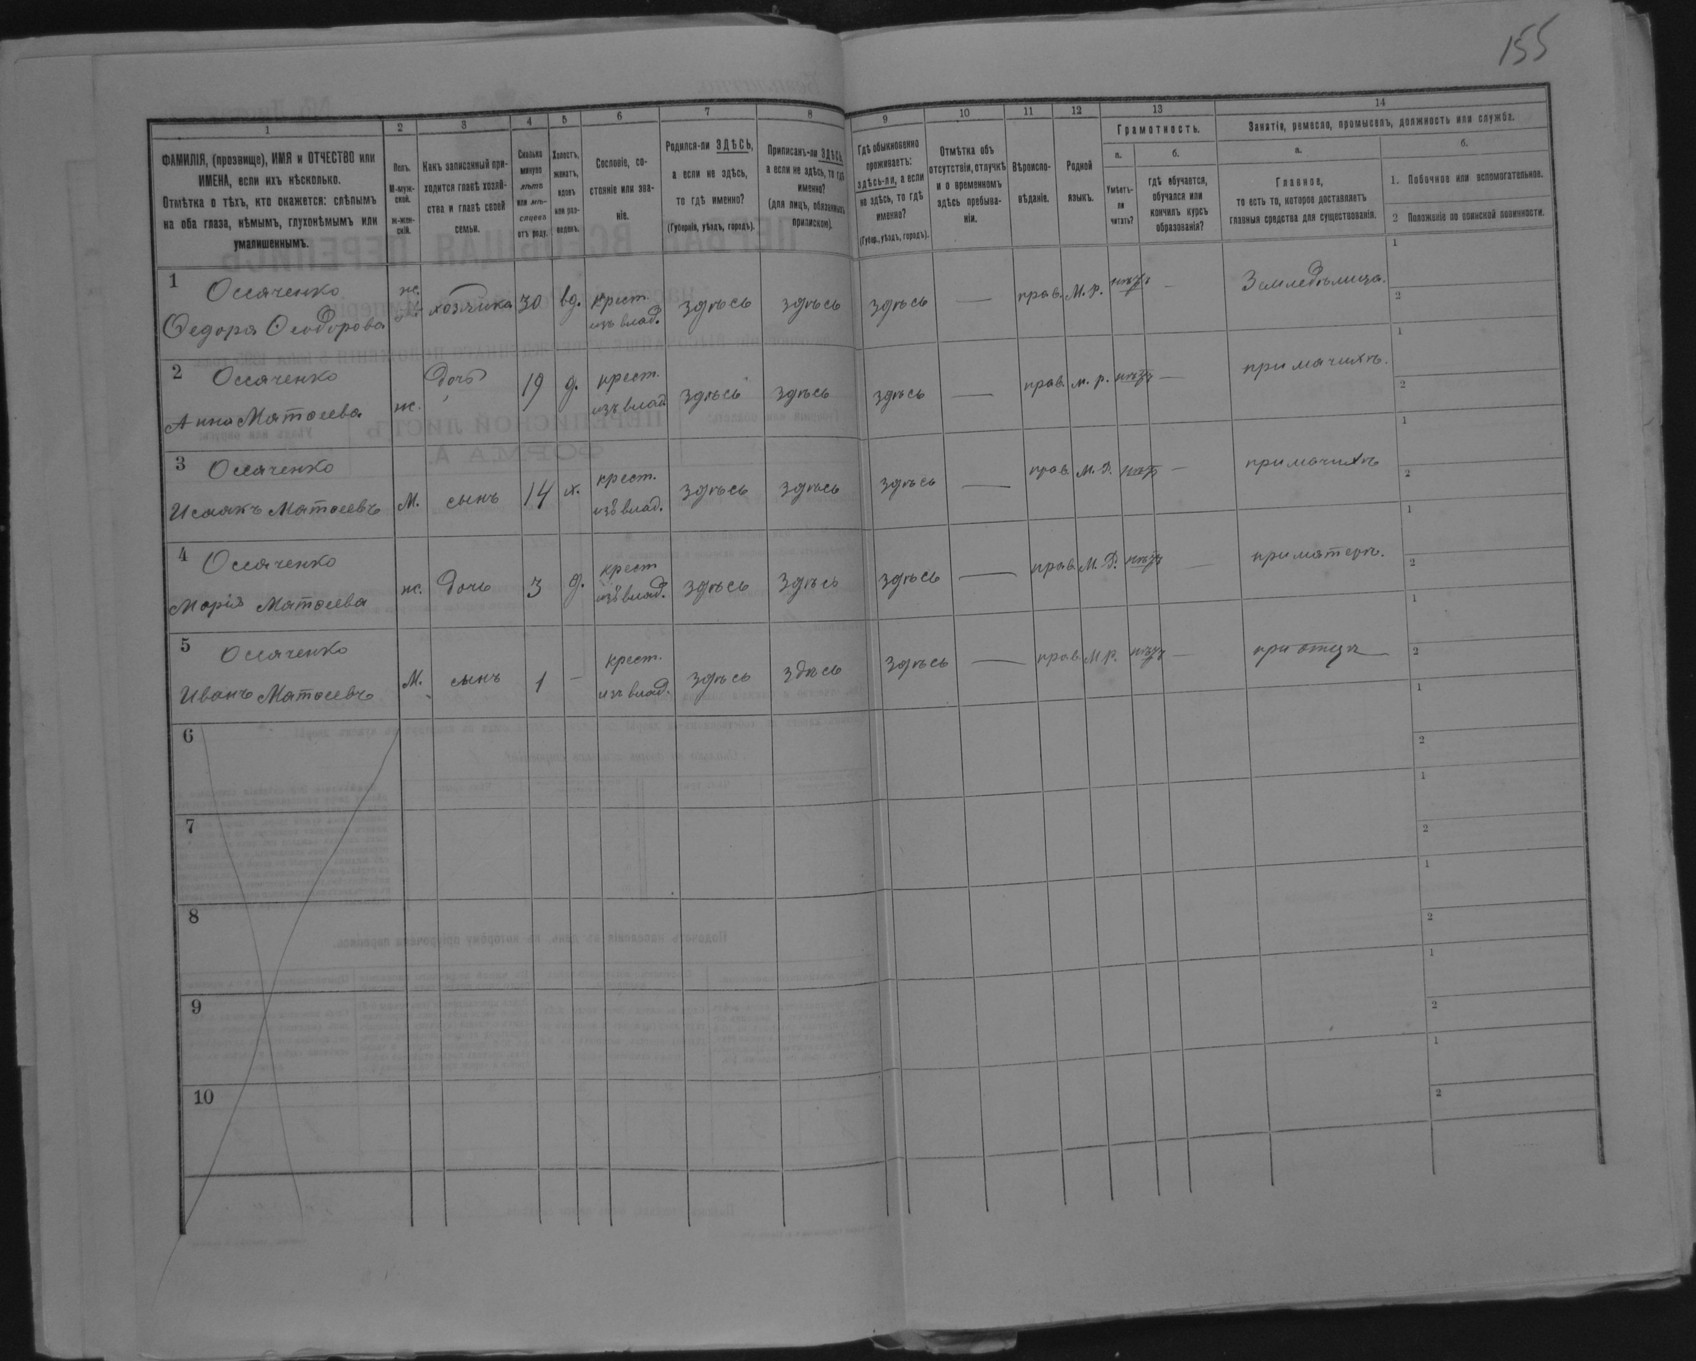 155
1 2 3 4 5 6 7 8 9 10 11 12 13 14
ФАМИЛІЯ, (прозвище), ИМЯ и ОТЧЕСТВО или
ИМЕНА, если ихъ нѣсколько.
Отмѣтка о тѣхъ, кто окажется: слѣпымъ
на оба глаза, нѣмымъ, глухонѣмымъ или
умалишеннымъ.
Полъ.
М-муж-
ской.
ж-жен-
скій.
Какъ записанный при-
ходится главѣ хозяй-
ства и главѣ своей
семьи.
Сколько
минуло
лѣтъ
или мѣ-
сяцевъ
отъ роду.
Холостъ,
женатъ,
вдовъ
или раз-
веденъ.
Сословіе, со-
стояніе или зва-
ніе.
Родился-ли ЗДѢСЬ,
а если не здѣсь,
то гдѣ именно?
(Губернія, уѣздъ, городъ).
Приписанъ-ли ЗДѢСЬ,
а если не здѣсь, то гдѣ
именно?
(для лицъ, обязанныхъ
припиской).
Гдѣ обыкновенно
проживаетъ:
здѣсь-ли, а если
не здѣсь, то гдѣ
именно?
(Губер., уѣздъ, городъ).
Отмѣтка объ
отсутствіи, отлучкѣ
и о временномъ
здѣсь пребыва-
ніи.
Вѣроиспо-
вѣданіе.
Родной
языкъ.
Грамотность.
а. б.
Умѣетъ-
ли
читать?
гдѣ обучается,
обучался или
кончилъ курсъ
образованія?
Занятіе, ремесло, промыселъ, должность или служба.
а. б.
Главное,
то есть то, которое доставляетъ
главныя средства для существованія.
1. Побочное или вспомогательное.
2 Положеніе по воинской повинности.
1 Осяченко
Федора Феодорова ж. хозяйка 30 вд. крест. изъ влад. здѣсь здѣсь здѣсь — прав. М. Р. нѣтъ — Земледѣлица. 1 2
2 Осяченко
Анна Матѳеева ж. дочь 19 д. крест. изъ влад. здѣсь здѣсь здѣсь — прав. м. р. нѣтъ — при мачихѣ. 1 2
3 Осяченко
Исаакъ Матѳеевъ М. сынъ 14 х. крест. изъ влад. здѣсь здѣсь здѣсь — прав. М. Р. нѣтъ — при мачихѣ 1 2
4 Осяченко
Марія Матѳеева ж. дочь 3 д. крест. изъ влад. здѣсь здѣсь здѣсь — прав. М. Р. нѣтъ — при матери. 1 2
5 Осяченко
Иванъ Матѳеевъ М. сынъ 1 — крест. изъ влад. здѣсь здѣсь здѣсь — прав. М. Р. нѣтъ — при отцѣ 1 2
6 1 2
7 1 2
8 1 2
9 1 2
10 1 2